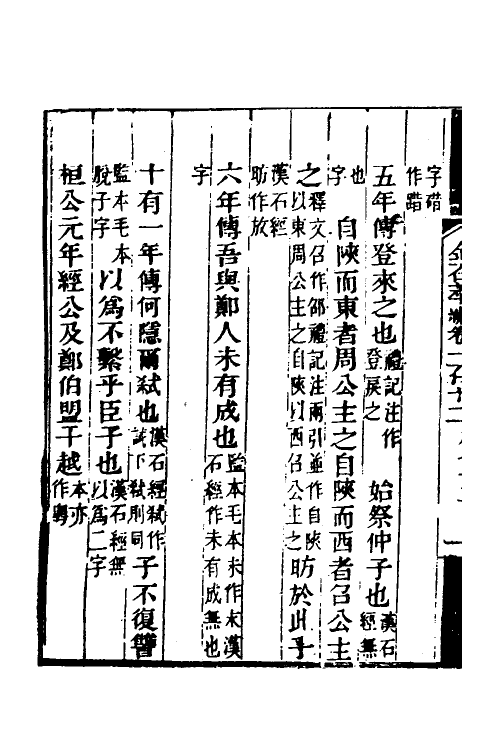 字醋
作踖
五年傳登來之也禮記注作登戾之　始祭仲子也漢石經無
也
字　自陝而東者周公主之自陝而西者召公主
之釋文召作邵禮記注兩引並作自陝以東周公主之自陝以西召公主之昉於此乎
漢石經
昉作放
六年傳吾與鄭人末有成也監本毛本末作未漢石經作未有成無也
字
十有一年傳何隱爾弒也漢石經弒作試下弒則同　子不復讐
監本毛本
脫子字以為不繫乎臣子也漢石經無以為二字
桓公元年經公及鄭伯盟于越本亦作粵